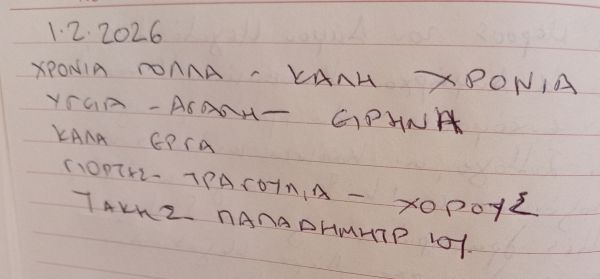 1.2.2026
ΧΡΟΝΙΑ ΠΟΛΛΑ - ΚΑΛΗ ΧΡΟΝΙΑ
ΥΓΕΙΑ - ΑΓΑΠΗ - ΕΙΡΗΝΗ
ΚΑΛΑ ΕΡΓΑ
ΓΙΟΡΤΕΣ - ΤΡΑΓΟΥΔΙΑ - ΧΟΡΟΥΣ
ΤΑΚΗΣ ΠΑΠΑΔΗΜΗΤΡΙΟΥ